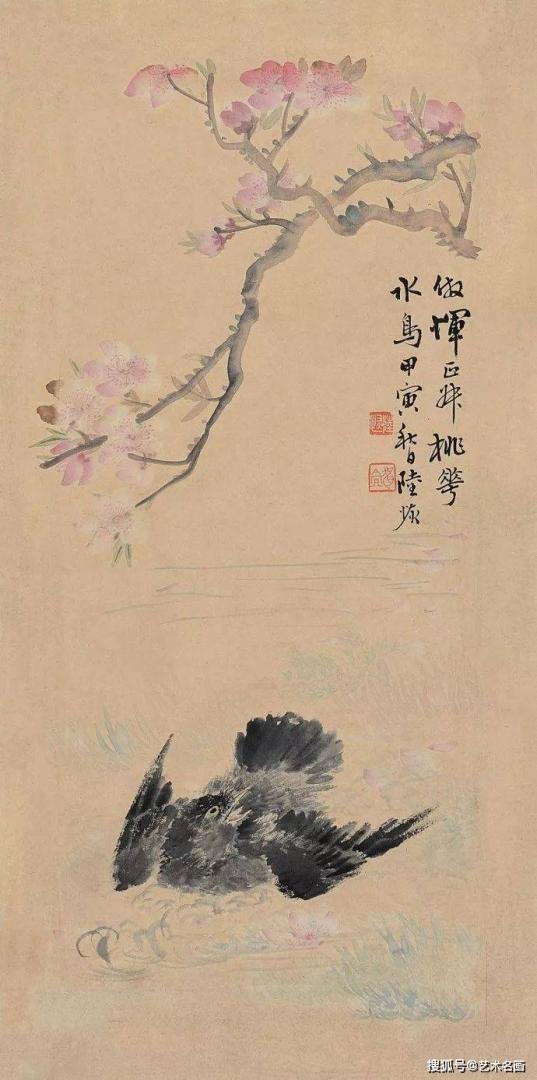 倣惲正叔桃華
水鳥甲寅秋日陸恢
搜狐号@艺术名画